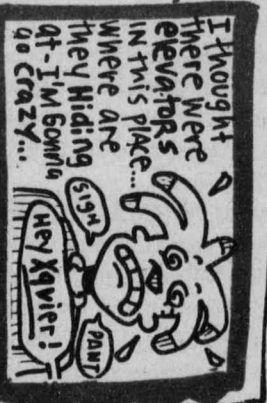 I thought
there were
elevators
in this place...
where are
they Hiding
at - I'm Gonna
go crazy...
SIGH
PANT
Hey Xavier!